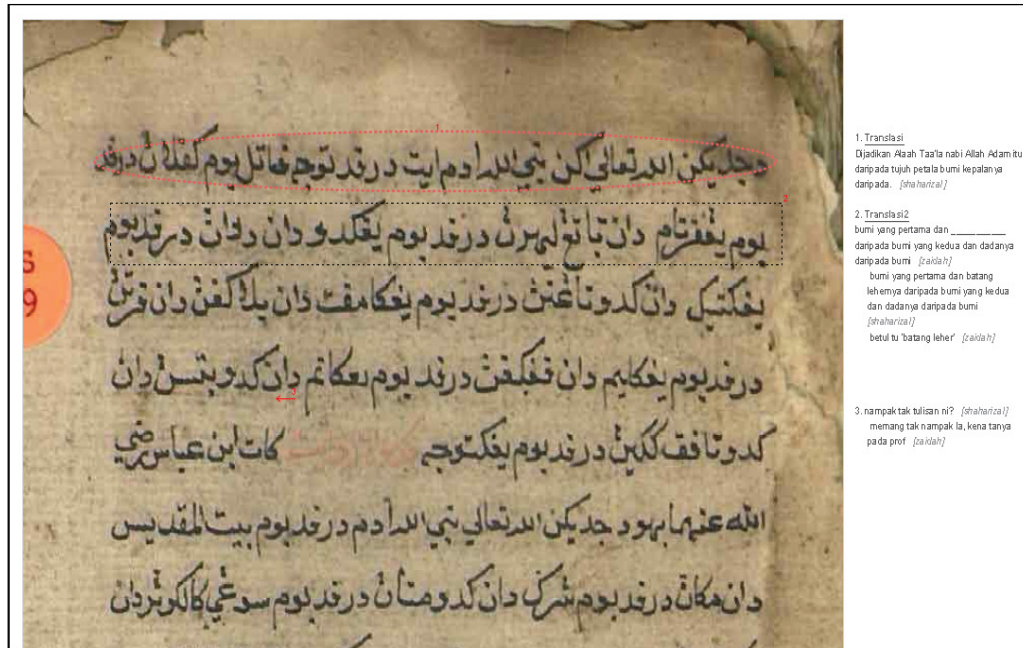 دجديكن الله تعالى اكن نبي الله ادم ايت درفد توجه فتل بوم كفلاڽ درفد
بوم يڠفرتام دان باتڠ ليهرڽ درفد بوم يڠكدو دان داداڽ درفد بوم
يڠكتيك دان كدو تاڠنڽ درفد بوم يڠكامفت دان بلاكڠڽ دان فرتڽ
درفد بوم يڠكليم دان فڠكڠڽ درفد بوم يڠكانم دان كدو بتسڽ دان
كدو تافق ككيڽ درفد بوم يڠكتوجه كات ابن عباس رضي
الله عنهما بهو دجديكن الله تعالي نبي الله ادم درفد بوم بيت المقديس
دان مكاڽ درفد بوم شرك دان كدو متاڽ درفد بوم سوڠي كالكوثر دان
5
9
1
2
3
1. Translasi
Dijadikan Alaah Taa'la nabi Allah Adam itu
daripada tujuh petala bumi kepalanya
daripada. [shaharizal]
2. Translasi2
bumi yang pertama dan ___________
daripada bumi yang kedua dan dadanya
daripada bumi [zaidah]
bumi yang pertama dan batang
lehernya daripada bumi yang kedua
dan dadanya daripada bumi
[shaharizal]
betul tu 'batang leher' [zaidah]
3. nampak tak tulisan ni? [shaharizal]
memang tak nampak la, kena tanya
pada prof [zaidah]